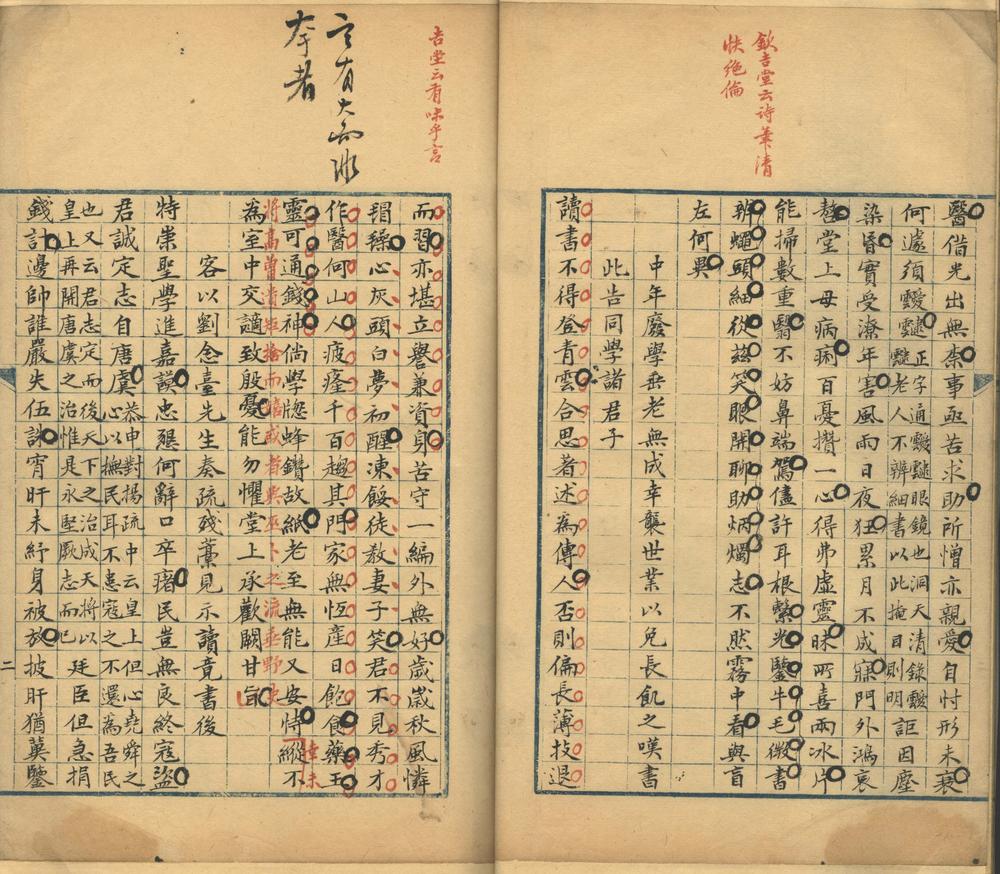 欽吉堂云詩筆清
快絶倫
醫借光出無柰事亟苦求助所憎亦親愛自忖形未衰
何遽須靉靆靆正字通靉靆眼鏡也洞天清錄靉
靆老人不辨細書以此掩目則明詎因塵
染昏實受潦年害風雨日夜狂累月不成寐門外鴻哀
嗸堂上母病痢百憂攢一心得弗虛靈昧所喜兩冰片
能掃數重翳不妨鼻端駕儘許耳根繫光鑒牛毛微書
辨蠅頭細從茲笑眼開聊助炳燭志不然霧中看與盲
左何異
中年廢學垂老無成幸襲世業以免長飢之嘆書
此告同學諸君子
讀書不得登青雲合思著述為傳人否則偏長薄技退
吉堂云有味乎言
言有大而
奔者
而習亦堪立譽兼資身苦守一編外無好歲歲秋風憐
心灰頭白夢初醒凍餒徒教妻子笑君不見秀才
作醫何山人疲癃千百趨其門家無恆產日飽食藥王
靈可通錢神倘學牕蜂鑽故紙老至無能又安恃縱不
為室中交謫致殷憂能勿懼堂上承歡闕甘旨
客以劉念臺先生奏疏殘藁見示讀竟書後
特崇聖學進嘉謨忠懇何辭口卒瘏民豈無良終寇盜
君誠定志自唐虞恭申對揚疏中云皇上但心堯舜之
心以撫民耳不患寇之不還為吾民
也又云君志定而後天下之治成天將以
皇上再開唐虞之治惟是永堅厥志而已廷臣但急捐
錢計邊帥誰嚴失伍誅宵旰未紓身被放披肝猶冀鑒
二